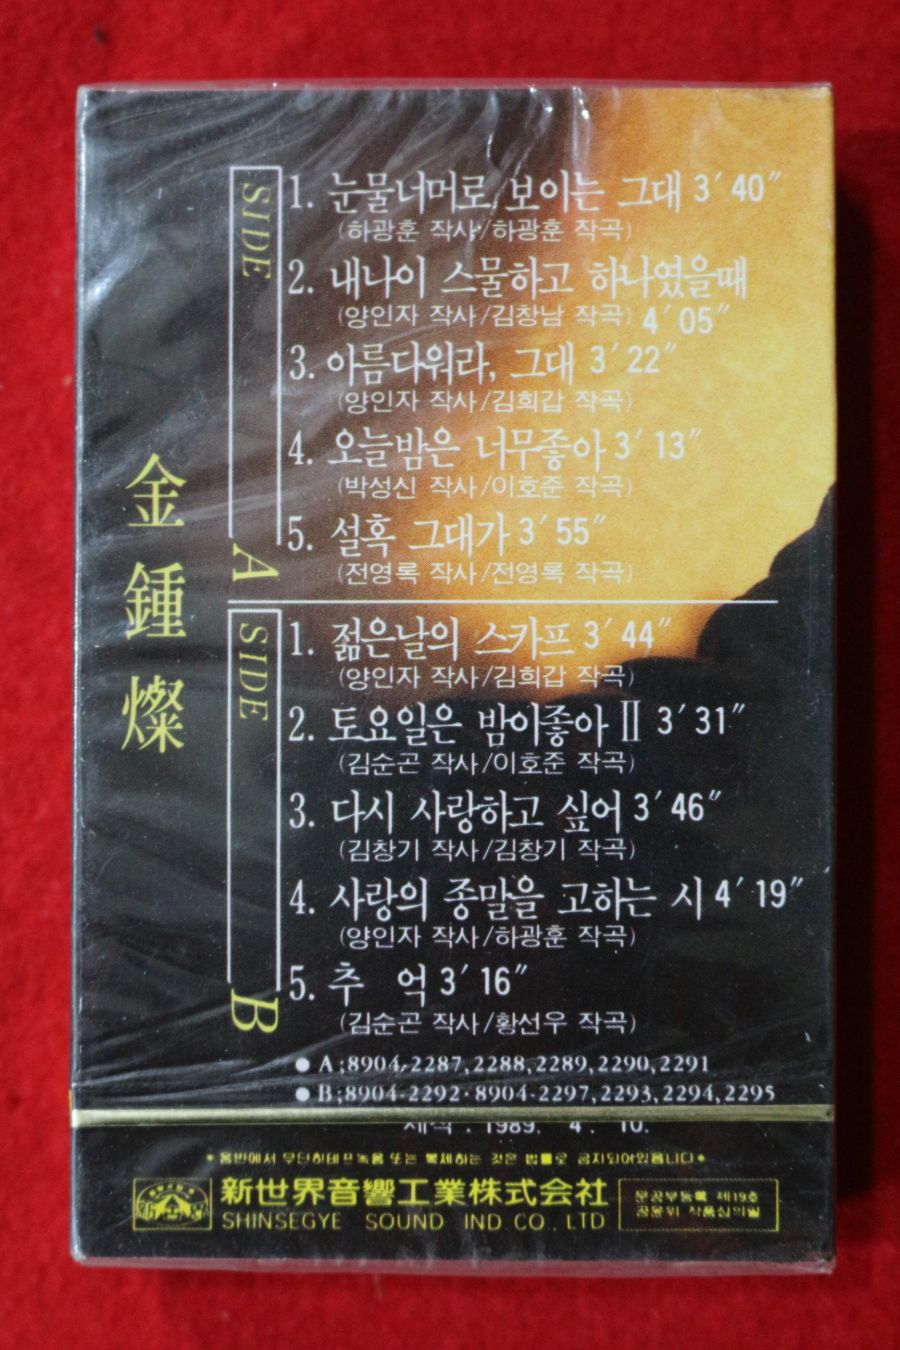 金鍾燦
SIDE A
1. 눈물너머로 보이는 그대 3′ 40″
(하광훈 작사/하광훈 작곡)
2. 내나이 스물하고 하나였을때
(양인자 작사/김창남 작곡) 4′ 05″
3. 아름다워라, 그대 3′ 22″
(양인자 작사/김희갑 작곡)
4. 오늘밤은 너무좋아 3′ 13″
(박성신 작사/이호준 작곡)
5. 설혹 그대가 3′ 55″
(전영록 작사/전영록 작곡)
SIDE B
1. 젊은날의 스카프 3′ 44″
(양인자 작사/김희갑 작곡)
2. 토요일은 밤이좋아 Ⅱ 3′ 31″
(김순곤 작사/이호준 작곡)
3. 다시 사랑하고 싶어 3′ 46″
(김창기 작사/김창기 작곡)
4. 사랑의 종말을 고하는 시 4′ 19″
(양인자 작사/하광훈 작곡)
5. 추 억 3′ 16″
(김순곤 작사/황선우 작곡)
● A;8904-2287,2288,2289,2290,2291
● B;8904-2292·8904-2297,2293,2294,2295
제작 : 1989. 4. 10.
* 음반에서 무단히테프녹음 또는 복제하는 것은 법률로 금지되어있읍니다 *
新世界音響工業株式会社
SHINSEGYE SOUND IND CO., LTD
문공부등록 제19호
공윤위 작품심의필